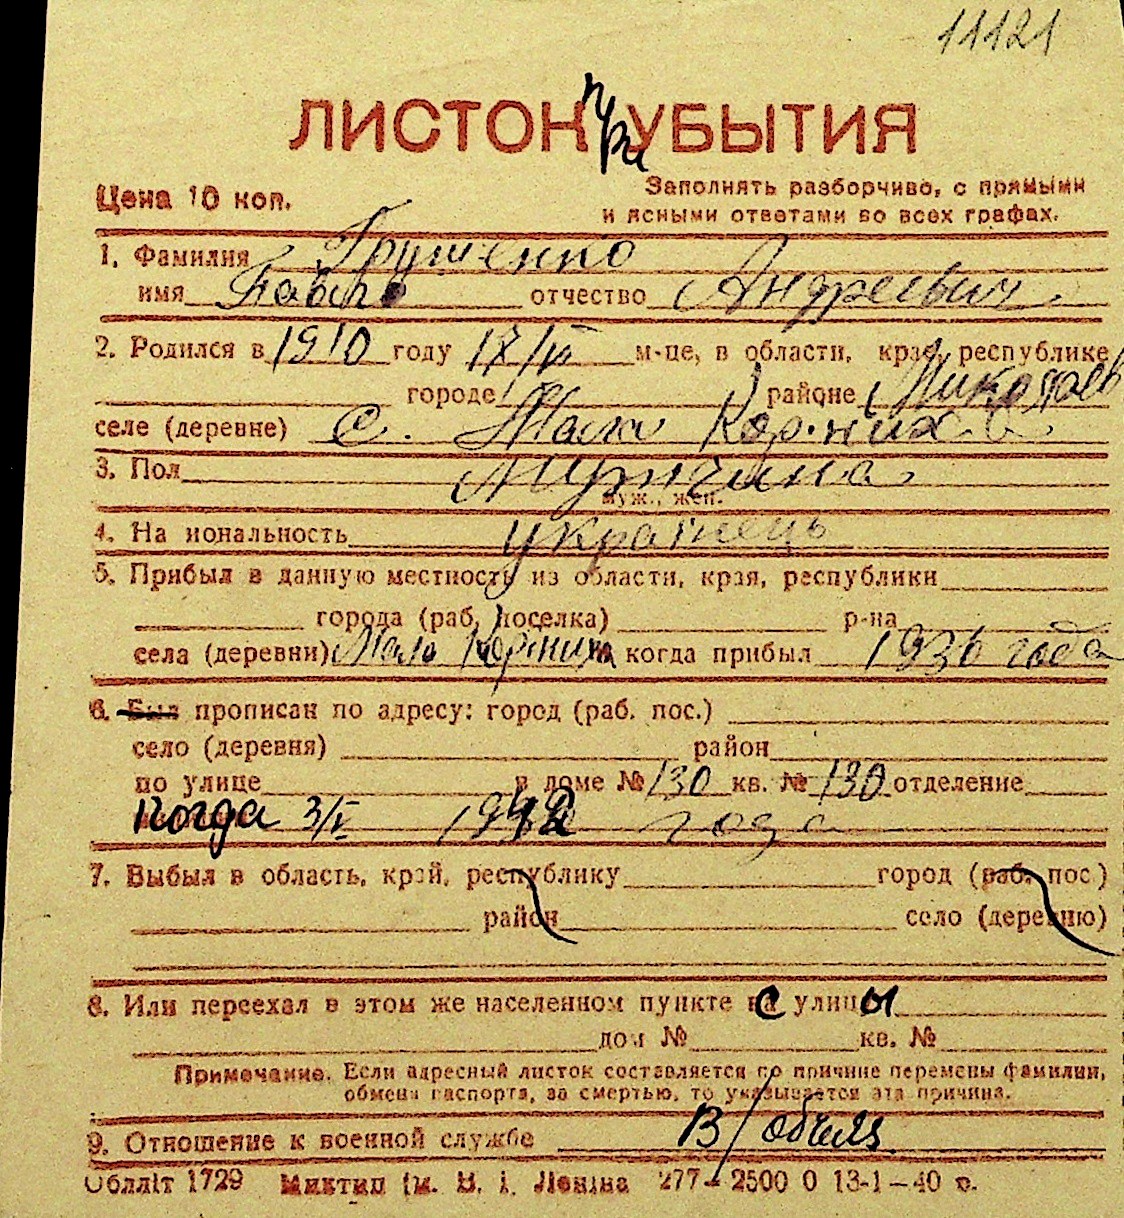 11121
ЛИСТОК при УБЫТИЯ
Цена 10 коп.
Заполнять разборчиво, с прямыми
и ясными ответами во всех графах.
1. Фамилия Грушенко
имя Павло отчество Андреевич
2. Родился в 1910 году м-це, в области, крае, республике
городе районе Николаев
селе (деревне) с. Мала Корениха
3. Пол Мужчина
муж., жен.
4. На иональность українець
5. Прибыл в данную местность из области, края, республики
города (раб. поселка) р-на
села (деревни) Мало Корениха когда прибыл 1936 года
6. Был прописан по адресу: город (раб. пос.)
село (деревня) район
по улице в доме № 130 кв. № 130 отделение
Когда 3/V 1942 года
7. Выбыл в область, край, республику город (раб. пос)
район село (деревню)
8. Или переехал в этом же населенном пункте с улицы
дом № кв. №
Примечание. Если адресный листок составляется по причине перемены фамилии,
обмена паспорта, за смертью, то указывается эта причина.
9. Отношение к военной службе
Облліт 1729 Миктип ім. В. І. Леніна 277 – 2500 0 13-1-40 р.